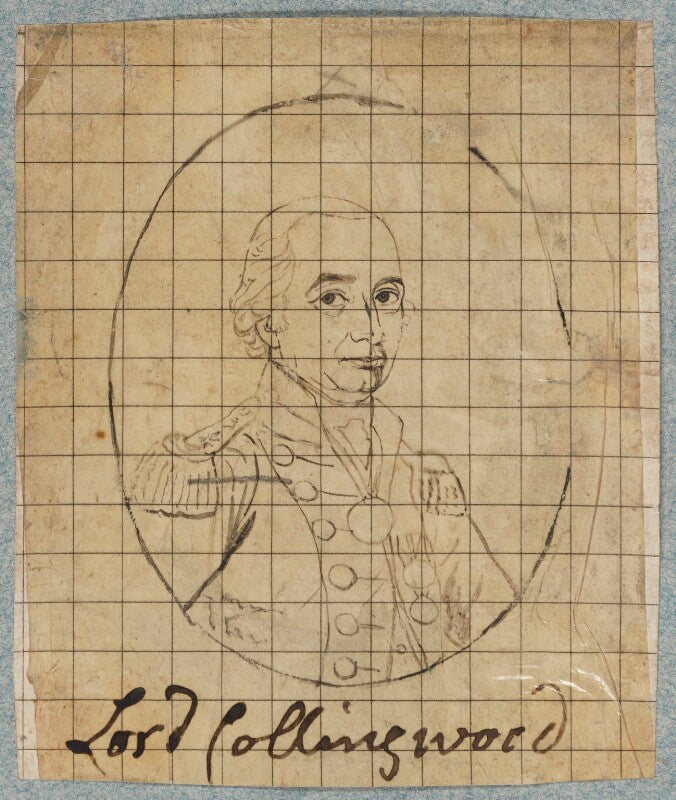 Lord Collingwood